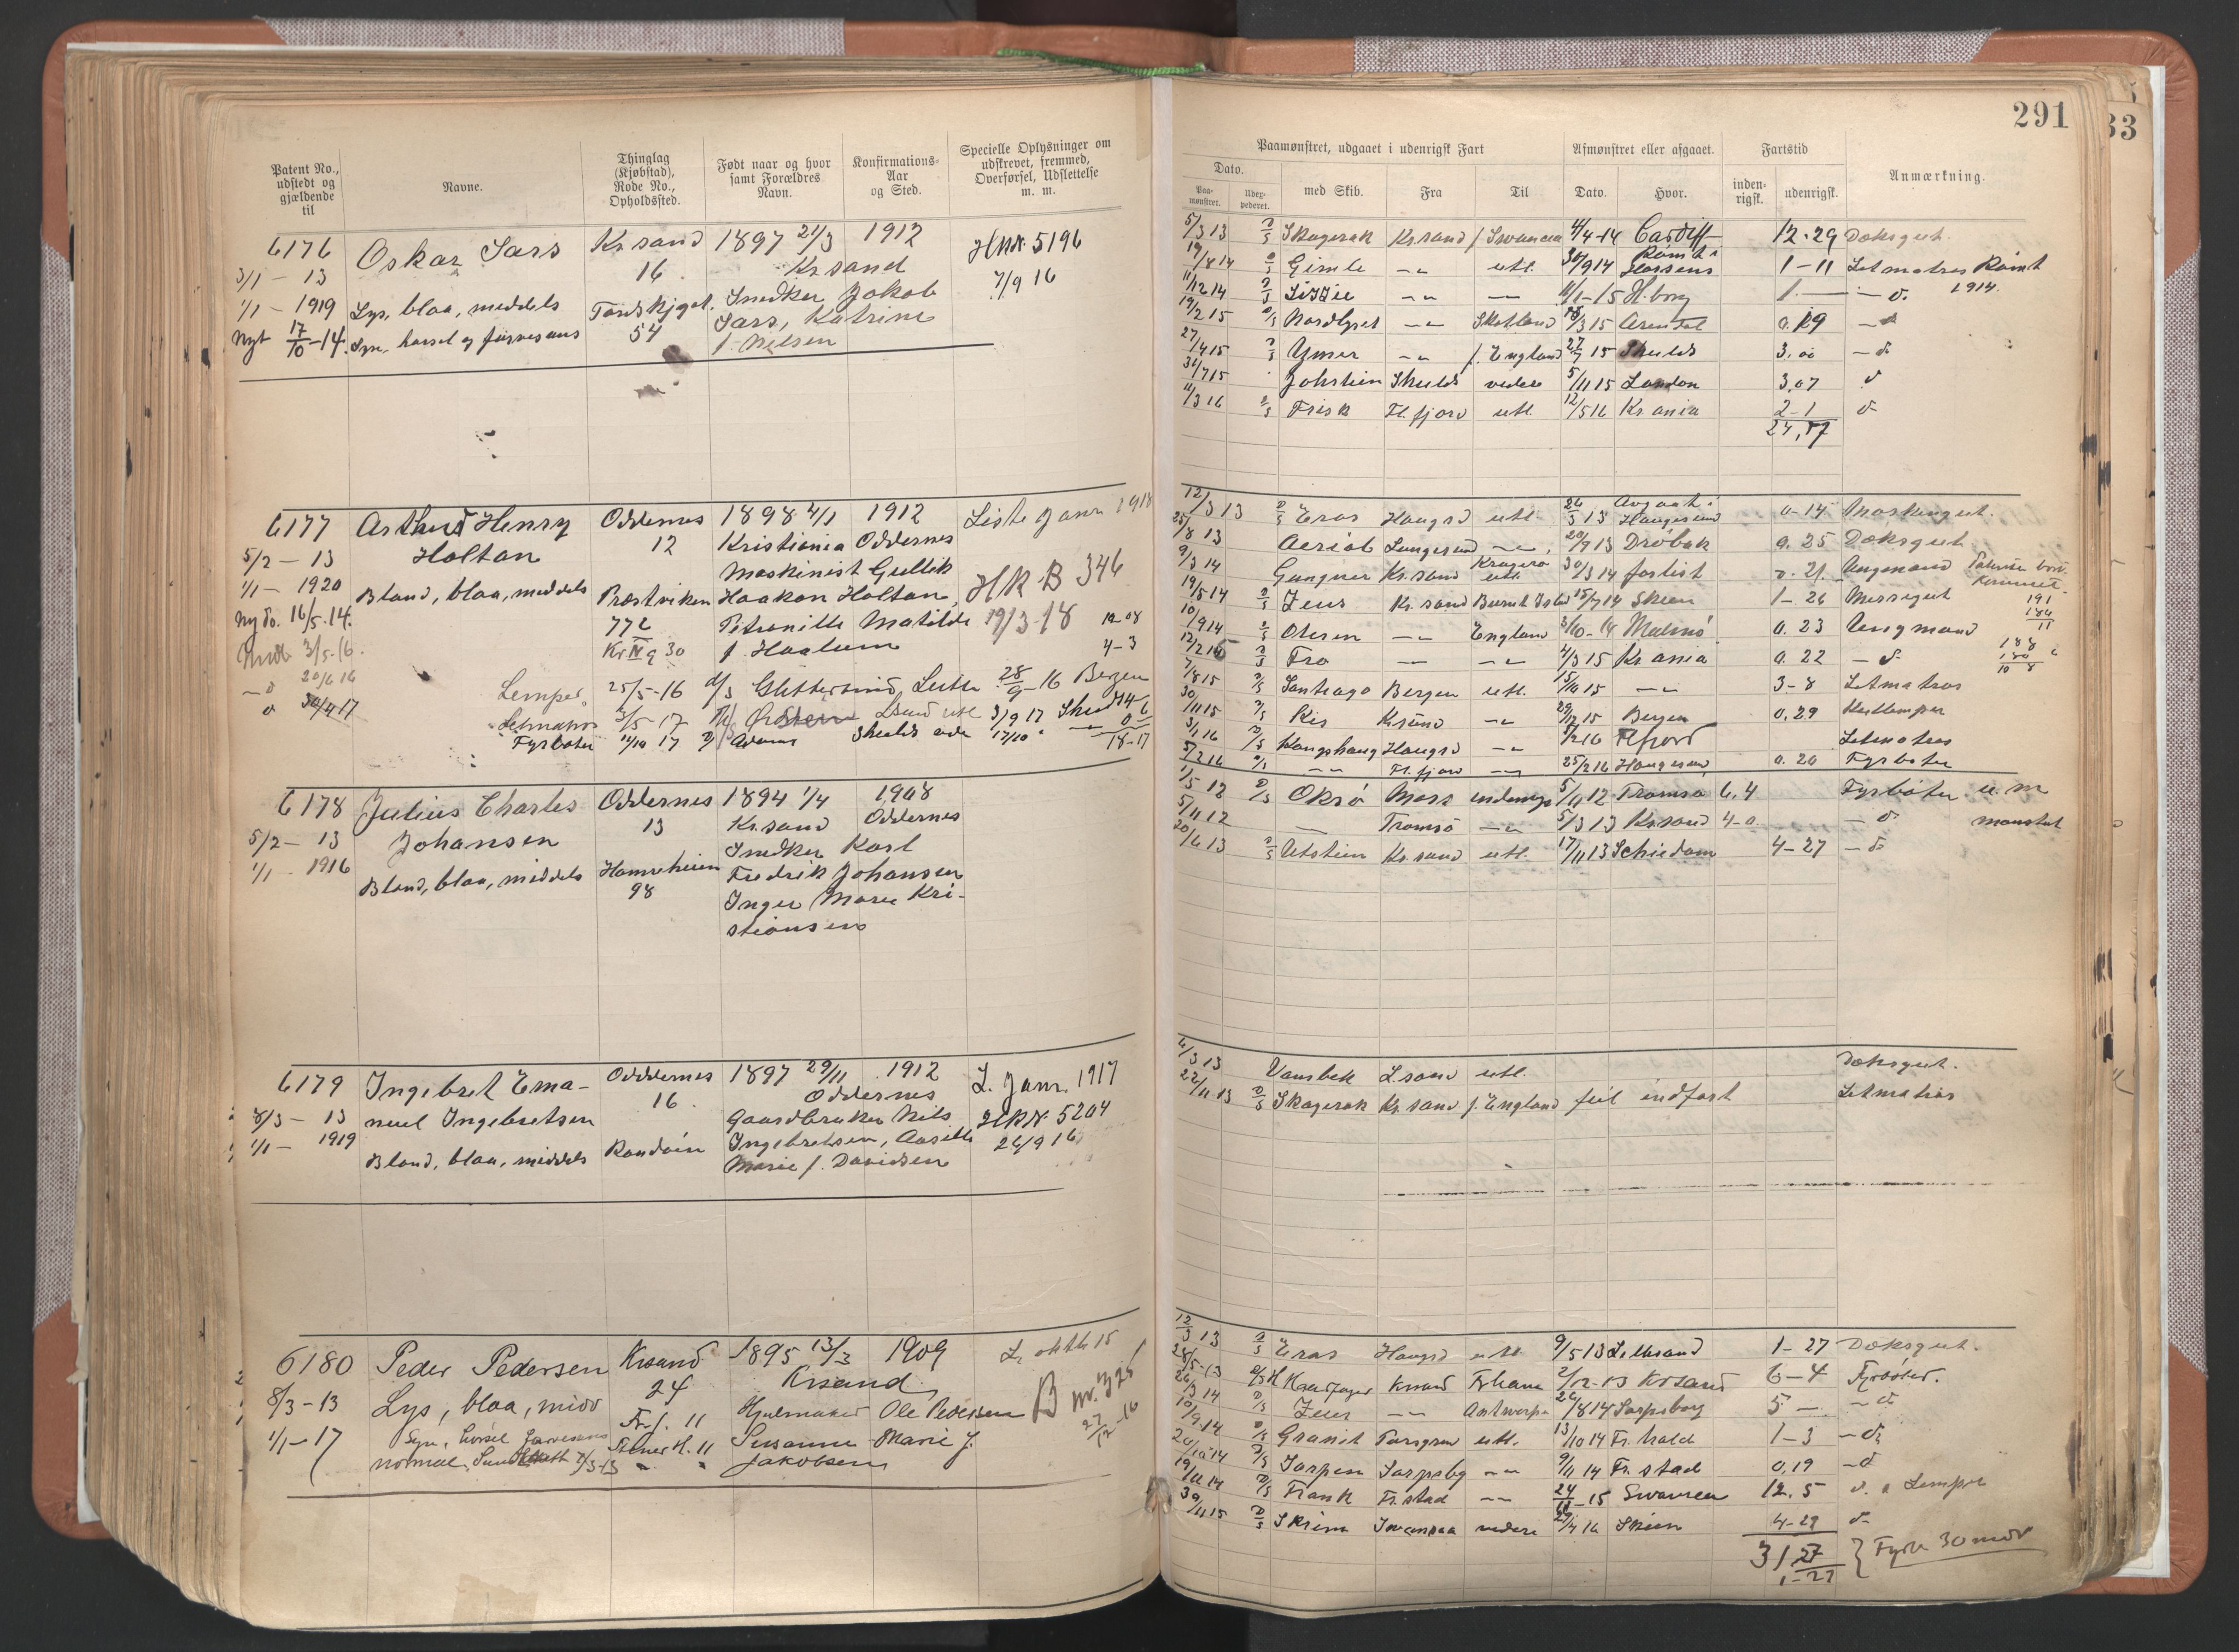 291
33
Patent No., udstedt og gjældende til
Navne.
Thinglag (Kjøbstad), Rode No., Opholdssted.
Født naar og hvor samt Forældres Navn.
Konfirmations-Aar og Sted.
Specielle Oplysninger om udskrevet, fremmed, Overførsel, Udslettelse m. m.
Paamønstret, udgaaet i udenrigsk Fart
Afmønstret eller afgaaet.
Fartstid
Anmærkning.
Dato.
Paa-mønstret.
med Skib.
Fra
Til
Dato.
Hvor.
inden-rigsk.
udenrigsk.
6176 Oskar Lars Kr.sand 1897 21/3 1912 HRNr. 5196
3/1 – 13 16 Kr.sand 7/9 16
1/1 – 1919 Lys, blaa, middels Snedker Jakob
Nyt 17/10 – 14. Syn, hørsel og farvesans 54 Lars, Katrine
f. Nilsen
5/3 13 D/S Skagerak Kr.sand f. Swansea 11/4-14 Cardiff 12-29 Dæksgut.
Rømt i
19/8 14 D/S Gimle –„– utl. 30/9 14 Horsens 1-11 Letmatros Rømt
1914.
11/12 14 D/S Lizzie –„– 11/1-15 H.borg 1 – d.
19/2 15 D/S Nordlyset –„– Skotland 18/3 15 Arendal 0.29 – d
27/4 15 D/S Ymer –„– f. England 27/7 15 Shields 3.00 – d
30/7 15 Johstein Shields videre 5/11 15 London 3.07 d
11/3 16 D/S Frisk Fl.fjord utl. 12/5 16 Kr.ania 2-1 d
24,17
6177 Arthur Henry Oddernes 1898 4/1 1912 Liste Janr. 1918
5/2 – 13 Holtan 12 Kristiania Oddernes
1/1 – 1920 Maskinist Gullik HR. B 346
Blond, blaa, middels Præstviken Haakon Holtan, 19/3-18
Ny do. 16/5-14. 772 Petronille Matilde
Kr IV 9 30 f. Haalum 4-3
3/5-16.
– d 20/6 16 Lemper 25/5-16 D/S Glittertind, Leith 28/9-16 Bergen
d 30/4 17 Letmatros 3/5-17 3/9 17
Fyrbøter 17 Adams Shields 17/10 18-17
12/3 13 D/S Eros Haugsd utl. 26/3 13 Avgaat i Haugesund 0-14 Maskingut.
25/8 13 Aeriol Langesund –„– 20/9 13 Drøbak 0.25 Dæksgut
9/3 14 Gungner Kr.sand Kragerø utl. 30/3 14 forlist 0.21. Ungmand
19/5 14 D/S Zeus Kr.sand Burnt Isld 15/7 14 Skien 1-26 Messegut
10/9 14 D/S Oteren –„– England 3/10-14 Malmö 0.23 Ungmand
12/2 15 D/S Fro –„– –„– 4/3 15 Kr.ania 0.22 – d
7/8 15 D/S Santiago Bergen utl. 15/11 15 –„– 3-8 Letmatros
30/11 15 D/S Ris Krsand –„– 29/12 15 Bergen 0.29 Kullemper
3/1 16 D/S Kongshaug Haugsd –„– 5/2 16 Fl.fjord Letmatros
5/2 16 D/S –„– Fl.fjord –„– 25/2 16 Haugesund 0.20 Fyrbøter
6178 Julius Charles Oddernes 1894 1/4 1908
5/2 – 13 Johansen 13 Kr.sand Oddernes
1/1 – 1916 Snedker Karl
Blond, blaa, middels Hamreheien Fredrik Johansen
98 Inger Marie Kri-
stiansen
1/5 12 D/S Oksø Moss indenrigs 5/11 12 Tromsø 6.4 Fyrbøter u. m
5/11 12 Tromsø –„– 5/3 13 Kr.sand 4-0 – d mønstret
20/6 13 D/S Utstein Kr.sand utl. 17/11 13 Schiedam 4-27 – d
6179 Ingebret Ema- Oddernes 1897 29/11 1912 L. Janr. 1917
8/3 – 13 nuel Ingebretsen 16 Oddernes HRNr. 5204
Gaardbruker Nils 26/9 16
1/1 – 1919 Randøen Ingebretsen, Aasille
Blond, blaa, middels Marie f. Davidsen
6/3 13 Vansbek Lsand utl. Dæksgut.
22/11 13 D/S Skagerak Kr.sand f. England feil indført Letmatros
6180 Peder Pedersen Krsand 1895 13/3 1909 L. oktb 15
8/3-13 Lys, blaa, midd 24 Krsand B nr. 325
1/1-17 Syn, hørsel farvesans Fr. f. 11 Hjulmaker Ole Pedersen 27/12-16
normal 7/3-13 Susanne Marie f.
Jakobsen
12/3 13 D/S Eros Haugsd utl 9/5 13 Lillesand 1-27 Dæksgut.
28/5-13 Haarfager Krsand 2/12-13 Krsand 6-4 Fyrbøter.
26/3 14 D/S Zeus –„– Antwerpe 26/8 14 Sarpsborg 5 – – d
10/9 14 D/S Granit Porsgrun utl. 13/10 14 Fr.hald 1-3 – d
20/10 14 D/S Sarpen Sarpsbg –„– 9/11 14 Fr.stad 0,19 – d
19/11 14 D/S Frank Fr.stad –„– 24/11-15 Swansea 12.5 d. a Lemper
30/11 15 D/S Skrim Swansea videre 29/4 16 Skien 4-29 d.
31,27 } Fyrb 30 mdr
1-27